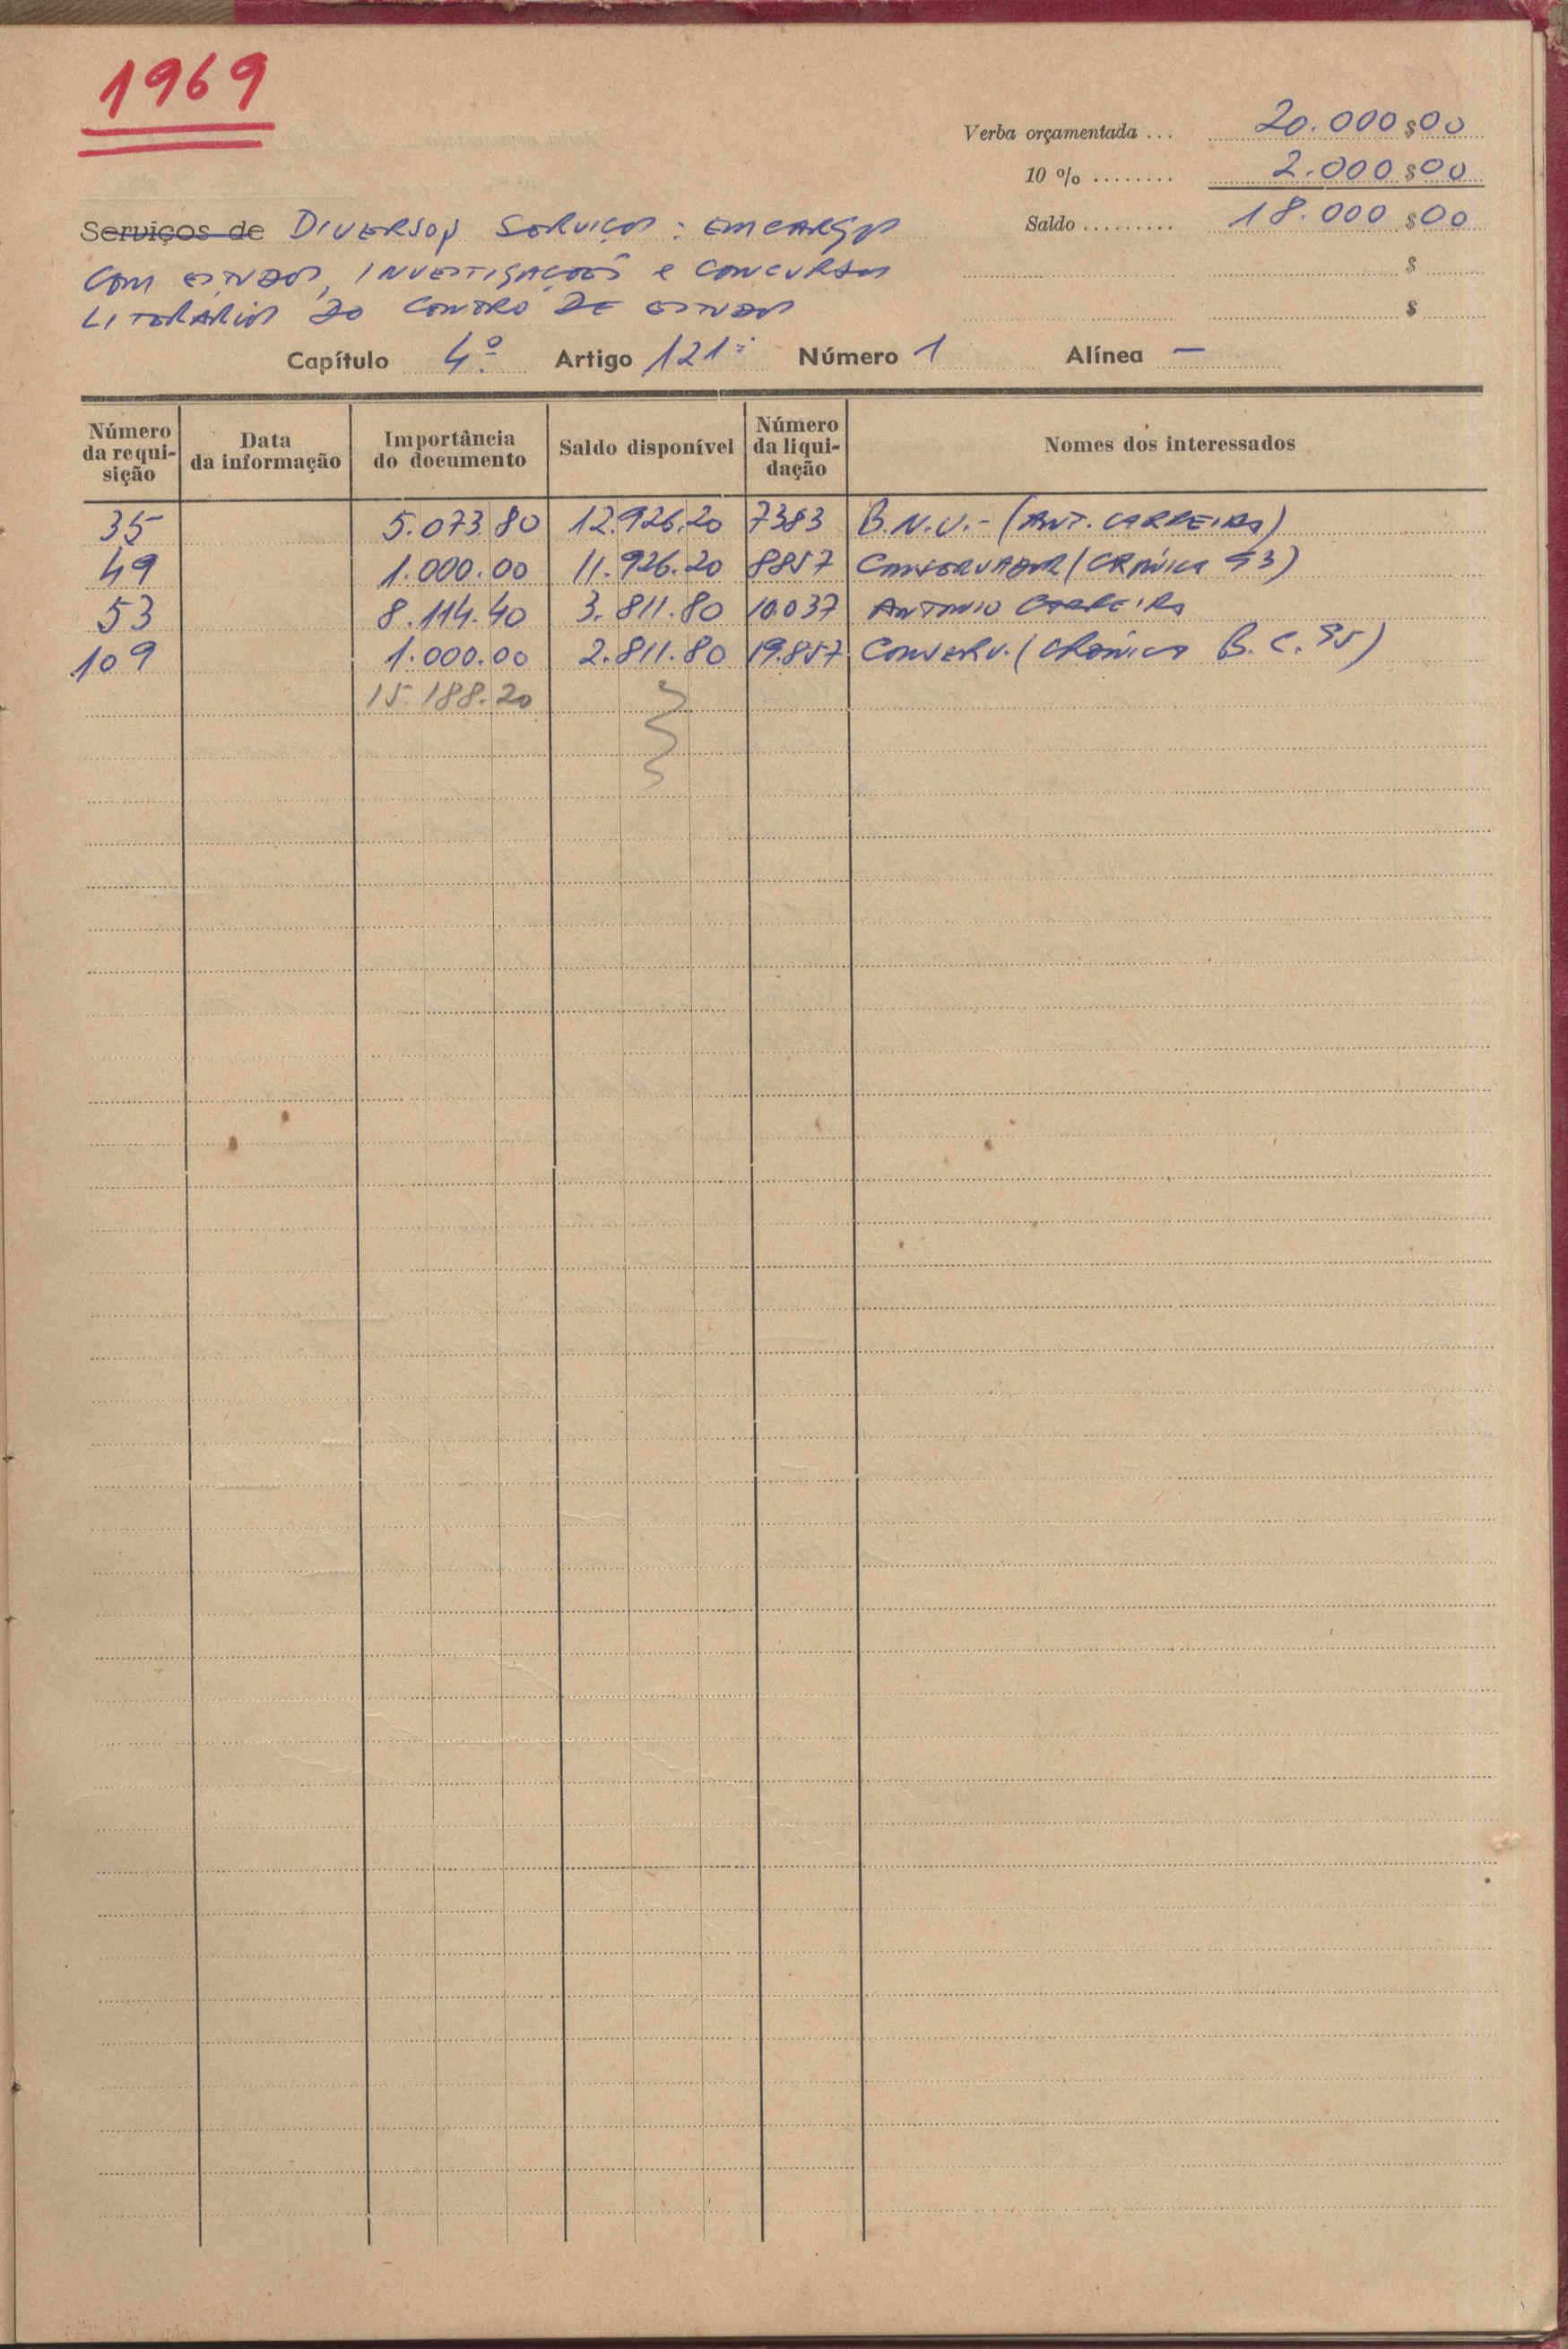 1969
Verba orçamentada ... 20.000$00
10 % ........ 2.000$00
Saldo ......... 18.000$00
$
$
Serviços de DIVERSOS SERVIÇOS: ENCARGOS
COM ESTUDOS, INVESTIGAÇÕES e CONCURSOS
LITERÁRIOS DO CENTRO DE ESTUDOS
Capítulo 4.º Artigo 121.º Número 1 Alínea —
Número da requisição Data da informação Importância do documento Saldo disponível Número da liquidação Nomes dos interessados
35 5.073.80 12.926.20 7383 B.N.U. - (ANT. CARREIRA)
49 1.000.00 11.926.20 8857 CONSERVADOR (CRÓNICA 53)
53 8.114.40 3.811.80 10.037 ANTONIO CARREIRA
109 1.000.00 2.811.80 19.857 CONSERV. (CRÓNICA B.C. 95)
15.188.20